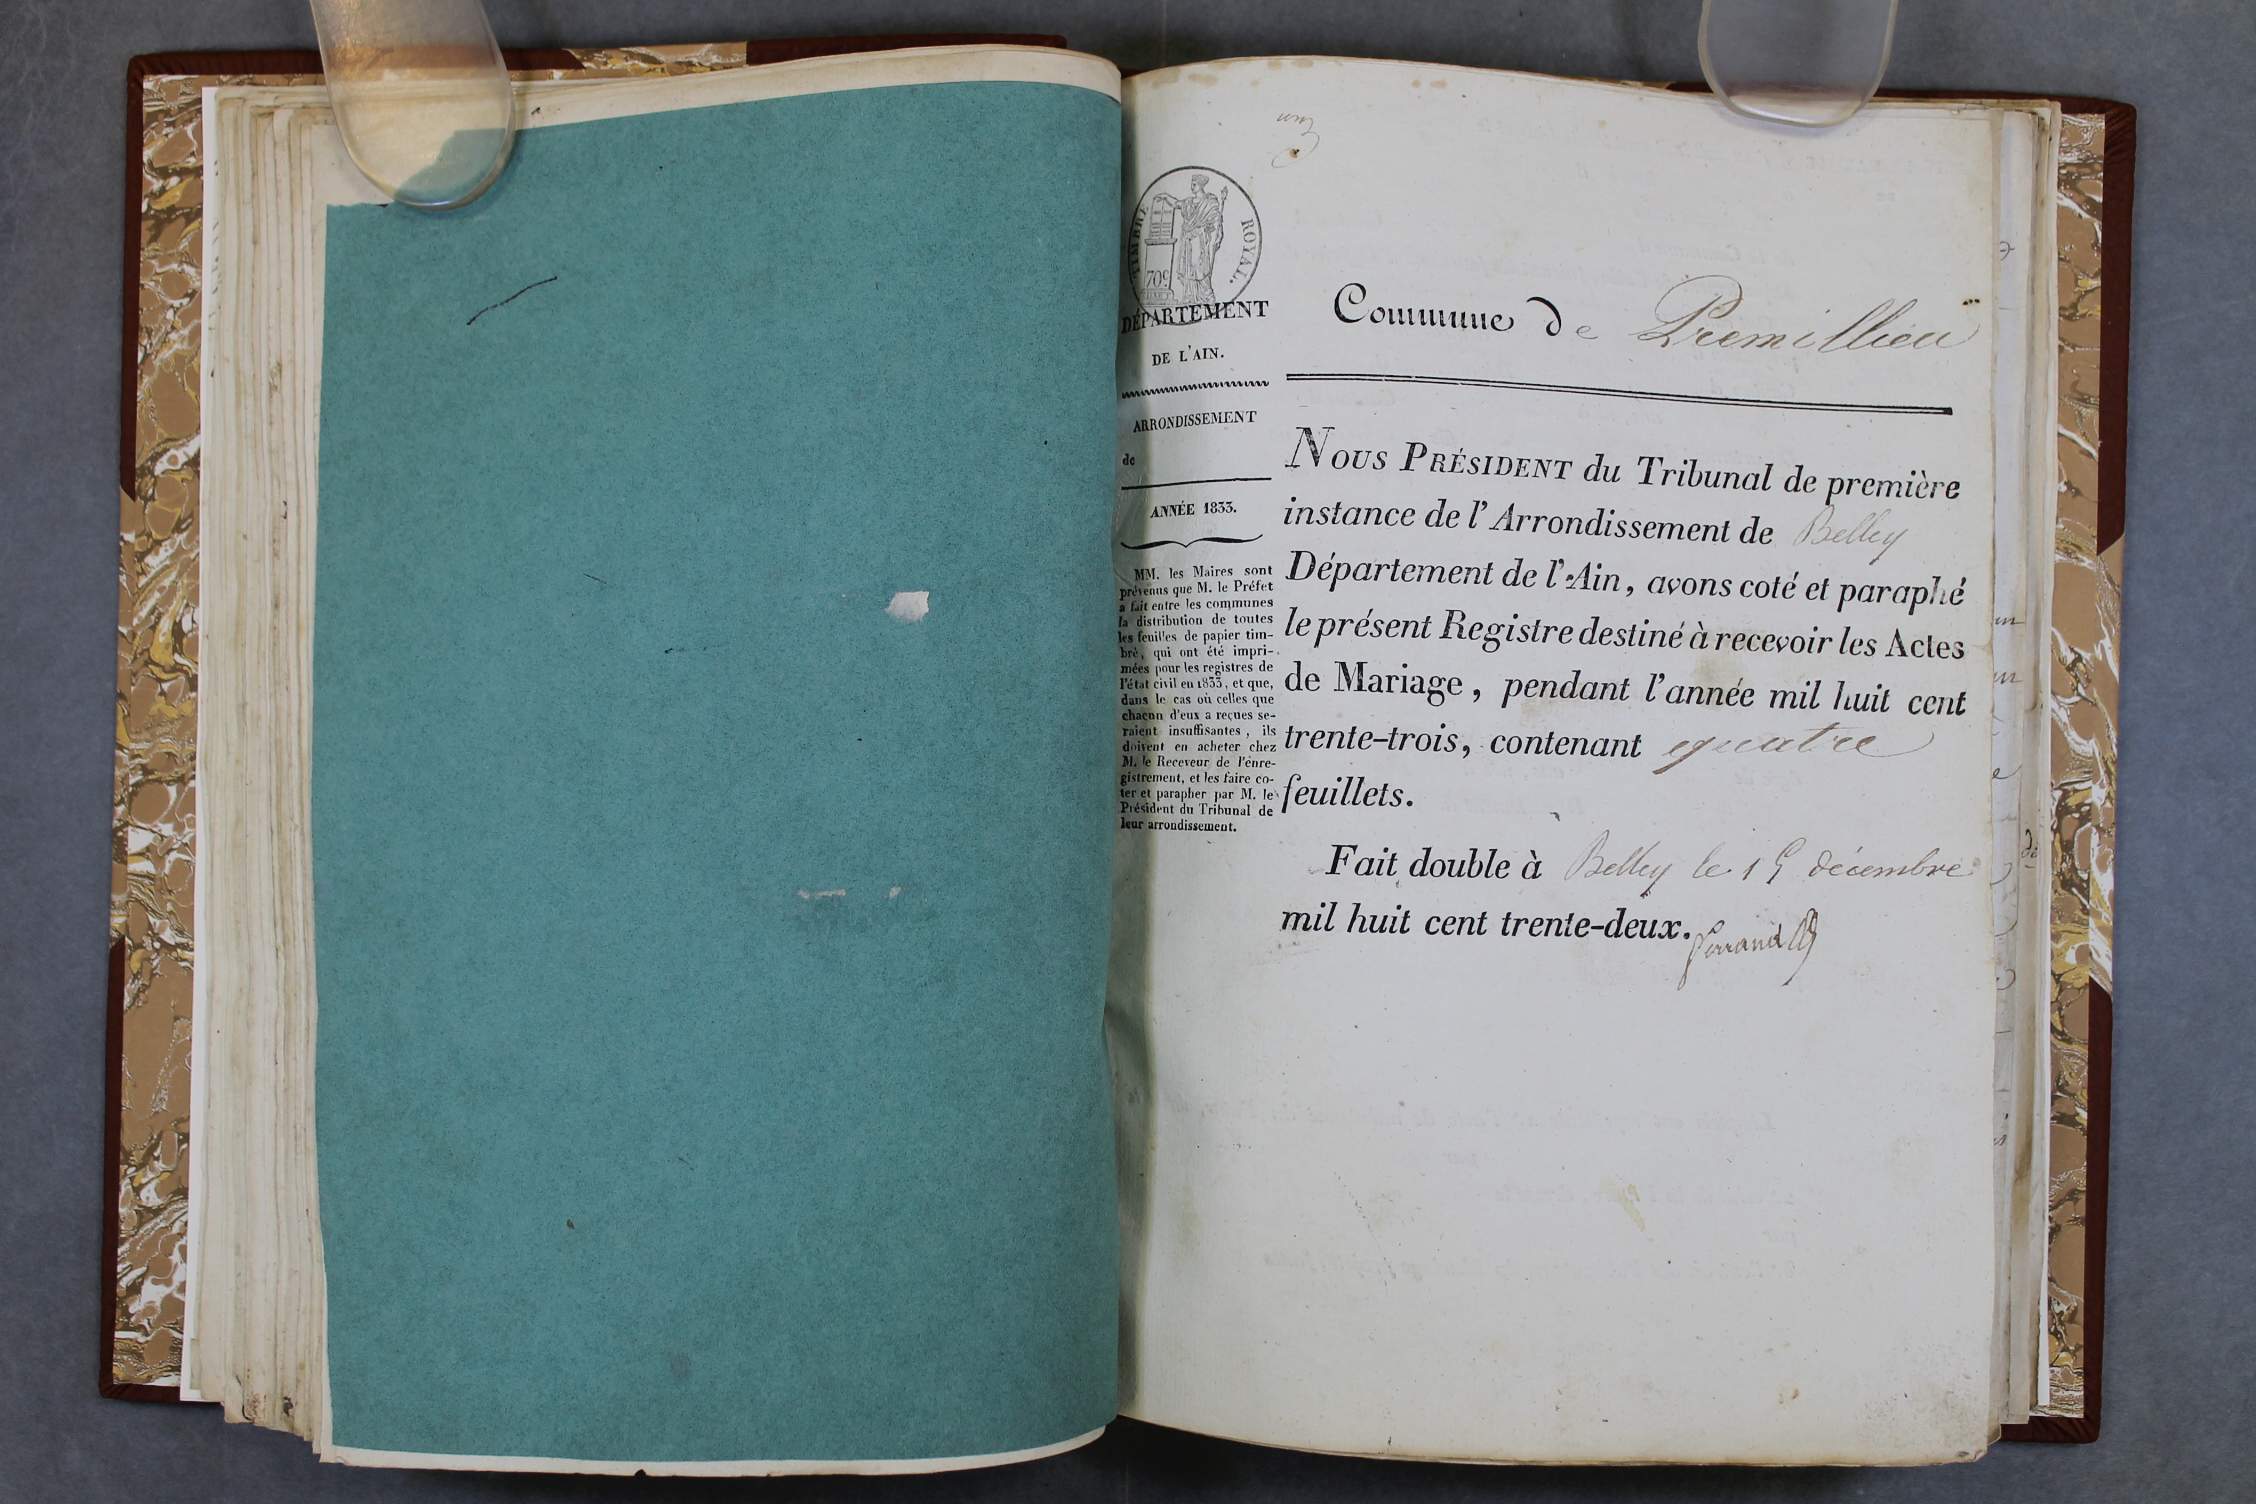 TIMBRE ROYAL.
70c
DÉPARTEMENT
DE L'AIN.
ARRONDISSEMENT
de
ANNÉE 1833.
MM. les Maires sont
prévenus que M. le Préfet
a fait entre les communes
la distribution de toutes
les feuilles de papier tim-
bré, qui ont été impri-
mées pour les registres de
l'état civil en 1833, et que,
dans le cas où celles que
chacun d'eux a reçues se-
raient insuffisantes, ils
doivent en acheter chez
M. le Receveur de l'enre-
gistrement, et les faire co-
ter et parapher par M. le
Président du Tribunal de
leur arrondissement.
Commune de Premillieu
NOUS PRÉSIDENT du Tribunal de première
instance de l'Arrondissement de Belley
Département de l'Ain, avons coté et paraphé
le présent Registre destiné à recevoir les Actes
de Mariage, pendant l'année mil huit cent
trente-trois, contenant quatre
feuillets.
Fait double à Belley le 15 décembre
mil huit cent trente-deux.